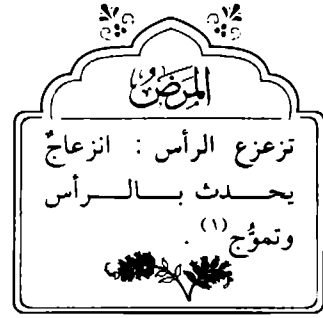 المَرَضُ
تزعزع الرأس : انزعاجٌ
يحدث بالرأس
وتموُّج (١) .